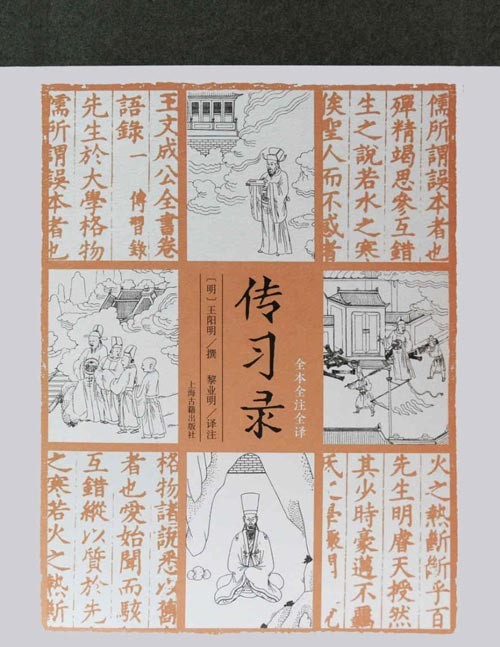 王文成公全書卷
語錄一　傳習錄
先生於大學格物
儒所謂誤本者也
儒所謂誤本者也
殫精竭思參互錯
生之說若水之寒
俟聖人而不惑者
传习录
全本全注全译
〔明〕王阳明／撰　黎业明／译注
上海古籍出版社
格物諸說悉以舊
者也愛始聞而駭
互錯縱以質於先
之寒若火之熱斷
火之熱斷斷乎百
先生明睿天授然
其少時豪邁不羈